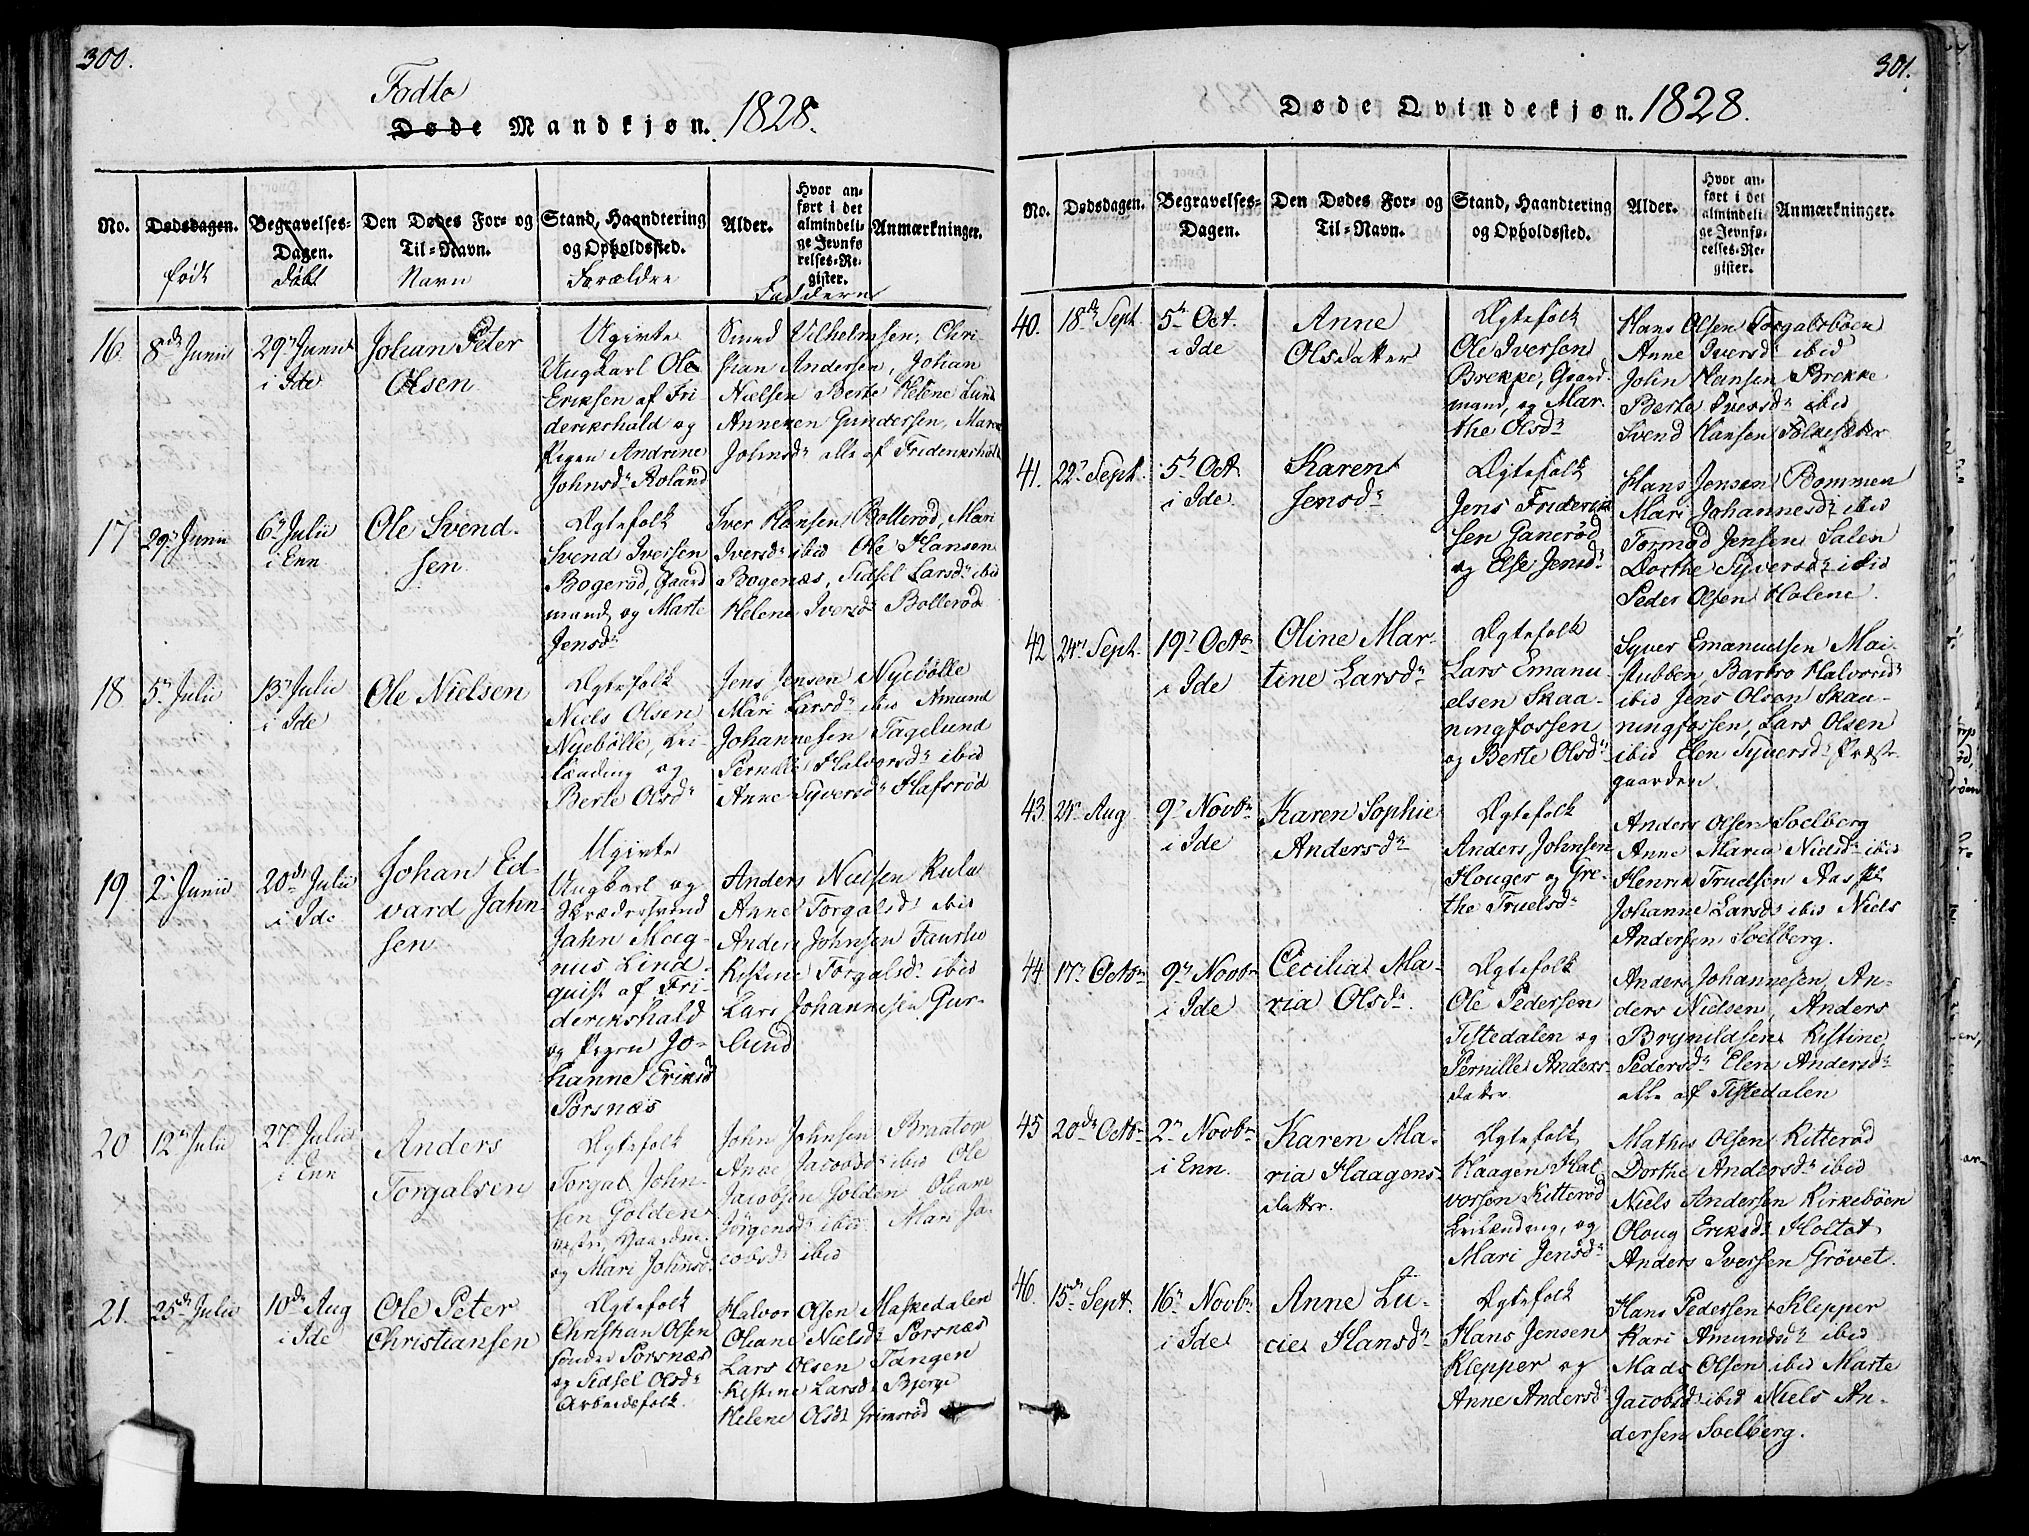 300.
Fødte
Døde Mandkjøn. 1828.
No.
Dødsdagen.
født
Begravelses-
Dagen.
døbt
Den Dødes For- og
Til-Navn.
Navn
Stand, Haandtering
og Opholdssted.
Forældre
Alder.
Hvor an-
ført i det
almindeli-
ge Jevnfø
relses-Re-
gister.
Anmærkninger.
Faddern
16. 8de Junii
29n Junii
i Ide
Johan Peter
Olsen
Ugivte
Ungkarl Ole
Eriksen af Fri
derikshald og
Pigen Andrine
Johnsdr Roland
Smed Vilhelmsen, Chri-
stian Andersen, Johan
Nielsen Berte Helene Lund
Anneken Gundersen, Maren
Johnsdr alle af Friderikshald
17 29n Junii
6n Julii
i Enn
Ole Svend-
sen
Ægtefolk
Svend Iversen
Bogerød, Gaard
mand, og Marte
Jensdr
Iver Hansen Bollerød, Mari
Iversdr ibid Ole Hansen
Bogenæs, Sidsel Larsdr ibid
Helene Iversdr Bollerød
18 5n Julii
13n Julii
i Ide
Ole Nielsen
Ægtefolk
Niels Olsen
Nyebølle, Lei-
lænding og
Berte Olsdr
Jens Jensen Nyebølle
Mari Larsdr ibid Amund
Johannesen Fagelund
Pernille Halvorsdr ibid
Anne Syversdr Hafsrød
19 2n Junii
20de Julii
i Ide
Johan Ed-
vard Jahn-
sen
Ugivte
Ungkarl og
Skrædersvend
Jahn Mag-
nus Lind-
quist af Fri-
derikshald
og Pigen Jo-
hanne Eriksdr
Porsnæs
Anders Nielsen Kula
Anne Torgalsdr ibid
Anders Johnsen
Kistine Torgalsdr ibid
Lars Johannesen Gur-
lund
20 12n Julii
27n Julii
i Enn
Anders
Torgalsen
Ægtefolk
Torgal John-
sen Golden-
og Mari Johnsd.
John Johnsen Braaton
Anne Jacobsdr ibid Ole
Jacobsen Golden
Jørgensdr ibid Mari Ja-
cobsdr ibid
21. 25de Julii
10de Aug
i Ide
Ole Peter
Christiansen
Ægtefolk
Christian Olsen
søndre Porsnæs
og Sidsel Olsdr
Arbeidsfolk.
Halvor Olsen Maskedalen
Oliane Nielsdr Porsnæs
Lars Olsen Tangen
Kistine Larsdr Bjerge
Helene Olsdr Grimsrød
301.
Døde Qvindekjøn. 1828.
No.
Dødsdagen.
Begravelses-
Dagen.
Den Dødes For- og
Til-Navn.
Stand, Haandtering
og Opholdssted.
Alder.
Hvor an-
ført i det
almindeli-
ge Jevnfø-
relses-Re-
gister.
Anmærkninger.
40. 18de Sept.
5n Oct.
i Ide
Anne
Olsdatter
Ægtefolk
Ole Iversen
Brekke, Gaard-
mand, og Mar-
the Olsdr
Hans Olsen Torgalsbøen
Anne Iversdr ibid
John Hansen Brekke
Berte Iversdr ibid
Svend Hansen Folkesæter
41. 22n Sept.
5n Oct
i Ide.
Karen
Jensdr
Ægtefolk
Jens Friderich
sen Ganerød
og Else Jensdr
Hans Jensen Bommen
Mari Johannesdr ibid
Tormod Jensen Salen
Dorthe Syversdr ibid
Peder Olsen Holene.
42 24n Sept.
19n Octbr
i Ide
Oline Mar-
tine Larsdr
Ægtefolk
Lars Emanu-
elsen Skaa-
ningfossen
og Berte Olsdr
Syver Emanuelsen Mai-
stubben, Barbro Halvorsdr
ibid Jens Olsen Skaa-
ningfossen, Lars Olsen
ibid Elen Syversdr Præst-
gaarden.
43. 24n Aug
9n Novbr
i Ide
Karen Sophie
Andersdr
Ægtefolk
Anders Johnsen
Houger og Gre-
the Truelsdr
Anders Olsen Soelberg
Anne Maria Nielsdr ibid
Henrik Truelsen
Johanne Larsdr ibid Niels
Andersen Soelberg.
44 17n Octbr
9n Novbr
i Ide
Cecilia Ma-
ria Olsdr.
Ægtefolk
Ole Pedersen
Tistedalen og
Pernille Anders-
datter
Anders Johannesen, An-
ders Nielsen, Anders
Brynildsen Kistine
Pedersdr Elen Andersdr
alle af Tistedalen
45 20de Octbr
2n Novbr
i Enn.
Karen Ma-
ria Haagens-
datter.
Ægtefolk
Haagen Hal-
vorsen Kitterød
Leilænding, og
Mari Jensdr
Mathis Olsen Kitterød
Dorthe Andersdr ibid
Niels Andersen Kirkebøen
Oloug Eriksdr Holtet
Anders Iversen Grøvet.
46. 15de Sept.
16n Novbr
i Ide
Anne Lu-
cie Hansdr
Ægtefolk
Hans Jensen
Klepper og
Anne Andersdr
Hans Pedersen Klepper
Kari Amundsdr ibid
Mads Olsen ibid Marte
Jacobsdr ibid Niels An-
dersen Soelberg.